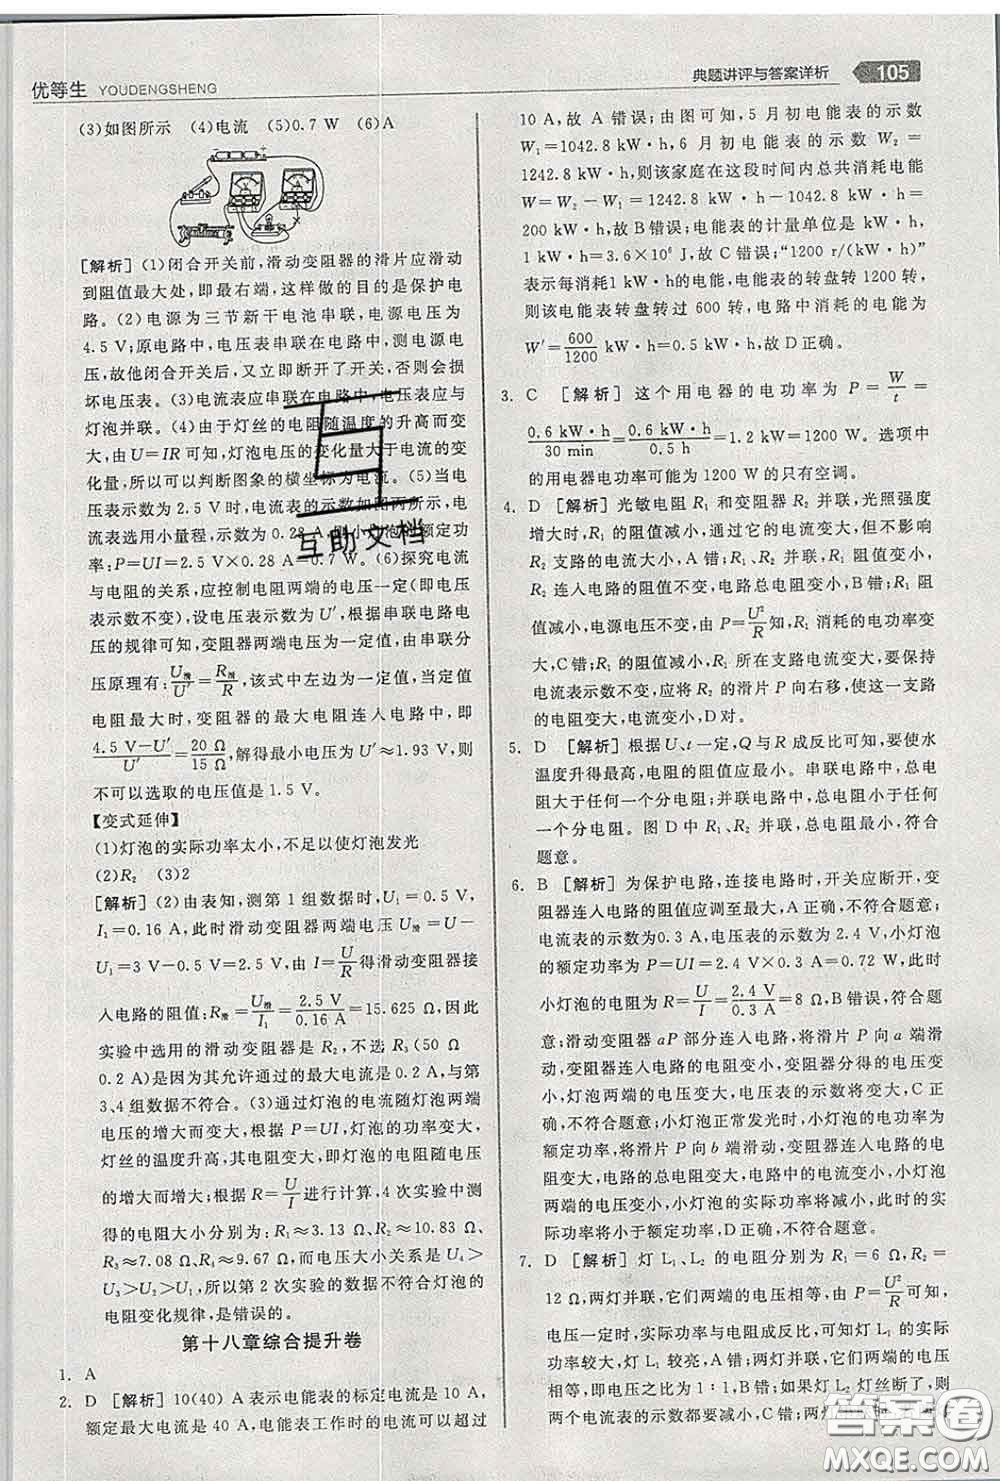 优等生 YOUDENGSHENG
典题讲评与答案详析 105
(3)如图所示 (4)电流 (5)0.7 W (6)A
[解析](1)闭合开关前,滑动变阻器的滑片应滑动
到阻值最大处,即最右端,这样做的目的是保护电
路。(2)电源为三节新干电池串联,电源电压为
4.5 V;原电路中,电压表串联在电路中,测电源电
压,故他闭合开关后,又立即断开了开关,会损
坏电压表。(3)电流表应串联在电路中,电压表应与
灯泡并联。(4)由于灯丝的电阻随温度的升高而变
大,由U=IR可知,灯泡电压的变化量大于电流的变
化量,所以可以判断图象的横坐标为电流。(5)当电
压表示数为2.5 V时,电流表的示数如图丙所示,电
流表选用小量程,示数为0.28 A,则小灯泡的额定功
率:P=UI=2.5 V×0.28 A=0.7 W。(6)探究电流
与电阻的关系,应控制电阻两端的电压一定(即电压
表示数不变),设电压表示数为U′,根据串联电路电
压的规律可知,变阻器两端电压为一定值,由串联分
压原理有:U滑/U′=R滑/R,该式中左边为一定值,当定值
电阻最大时,变阻器的最大电阻连入电路中,即
4.5 V−U′/U′=20 Ω/15 Ω,解得最小电压为U′≈1.93 V,则
不可以选取的电压值是1.5 V。
【变式延伸】
(1)灯泡的实际功率太小,不足以使灯泡发光
(2)R₂ (3)2
[解析](2)由表知,测第1组数据时,U₁=0.5 V,
I₁=0.16 A,此时滑动变阻器两端电压U滑=U−
U₁=3 V−0.5 V=2.5 V,由I=U/R得滑动变阻器接
入电路的阻值:R滑=U滑/I₁=2.5 V/0.16 A=15.625 Ω,故
实验中选用的滑动变阻器是R₂,不选R₃(50 Ω
0.2 A)是因为其允许通过的最大电流是0.2 A,与第
3、4组数据不符合。(3)通过灯泡的电流随灯泡两端
电压的增大而变大,根据P=UI,灯泡功率变大,
灯丝的温度升高,其电阻变大,即灯泡电阻随电压
的增大而增大,根据R=U/I进行计算,4次实验中测
得的电阻大小分别为:R₁≈3.13 Ω、R₂≈10.83 Ω、
R₃≈7.08 Ω、R₄≈9.67 Ω,而电压大小关系是U₄>
U₃>U₂>U₁,所以第2次实验的数据不符合灯泡的
电阻变化规律,是错误的。
第十八章综合提升卷
1. A
2. D [解析]10(40) A表示电能表的标定电流是10 A,
额定最大电流是40 A,电能表工作时的电流可以超过
10 A,故A错误;由图可知,5月初电能表的示数
W₁=1042.8 kW·h,6月初电能表的示数W₂=
1242.8 kW·h,则该家庭在这段时间内总共消耗电能
W=W₂−W₁=1242.8 kW·h−1042.8 kW·h=
200 kW·h,故B错误;电能表的计量单位是kW·h,
1 kW·h=3.6×10⁶ J,故C错误;“1200 r/(kW·h)”
表示每消耗1 kW·h的电能,电能表转盘转1200转,
则该电能表转盘转过600转,电路中消耗的电能为
W′=600/1200 kW·h=0.5 kW·h,故D正确。
3. C [解析]这个用电器的电功率为P=W/t=
0.6 kW·h/30 min=0.6 kW·h/0.5 h=1.2 kW=1200 W。选项中
的用电器电功率可能为1200 W的只有空调。
4. D [解析]光敏电阻R₁和变阻器R₂并联,光照强度
增大时,R₁的阻值减小,通过它的电流变大,但不影响
R₂支路的电流大小,A错;R₁、R₂并联,R₁阻值变小,
R₂接入电路的阻值不变,电路总电阻变小,B错;R₁电阻
值减小,电源电压不变,由P=U²/R知,R₁消耗的电功率变
大,C错;R₁的阻值减小,R₁所在支路电流变大,要保持
电流表示数不变,应将R₂的滑片P向右移,使这一支路
的电阻变大,电流变小,D对。
5. D [解析]根据U、t一定,Q与R成反比可知,要使水
温度升得最高,电阻的阻值应最小。串联电路中,总电
阻大于其中任何一个分电阻;并联电路中,总电阻小于任何
一个分电阻。图D中R₁、R₂并联,总电阻最小,符合
题意。
6. B [解析]为保护电路,连接电路时,开关应断开,变
阻器连入电路的阻值应调至最大,A正确,不符合题意;
电流表的示数为0.3 A,电压表示数为2.4 V,小灯泡
的额定功率为P=UI=2.4 V×0.3 A=0.72 W,此时
小灯泡的电阻R=U/I=2.4 V/0.3 A=8 Ω,B错误,符合题
意;滑动变阻器aP部分连入电路,将滑片P向a端滑
动,变阻器连入电路的电阻变小,变阻器分得的电压变
小,灯泡两端的电压变大,电压表的示数将变大,C正确,
不符合题意;小灯泡正常发光时,小灯泡的电功率为
额定功率,将滑片P向b端滑动,变阻器连入电路的电
阻变大,电路的总电阻变大,电路中的电流变小,小灯泡
两端的电压变小,小灯泡的实际功率将减小,此时的实
际功率将小于额定功率,D正确,不符合题意。
7. D [解析]灯L₁、L₂的电阻分别为R₁=6 Ω,R₂=
12 Ω,两灯并联时,两灯的电压相等,由P=U²/R可知,
电压一定时,电功率与电阻成反比,故灯L₁的实际功率
较大,灯L₁较亮,A错;两灯并联时,电压相等,则两灯
两端的电压之比为1∶1,B错;如果灯L₁的灯丝断了,
两个电流表的示数都要减小,C错;两灯
互助文档
答案圈
MXQE.COM